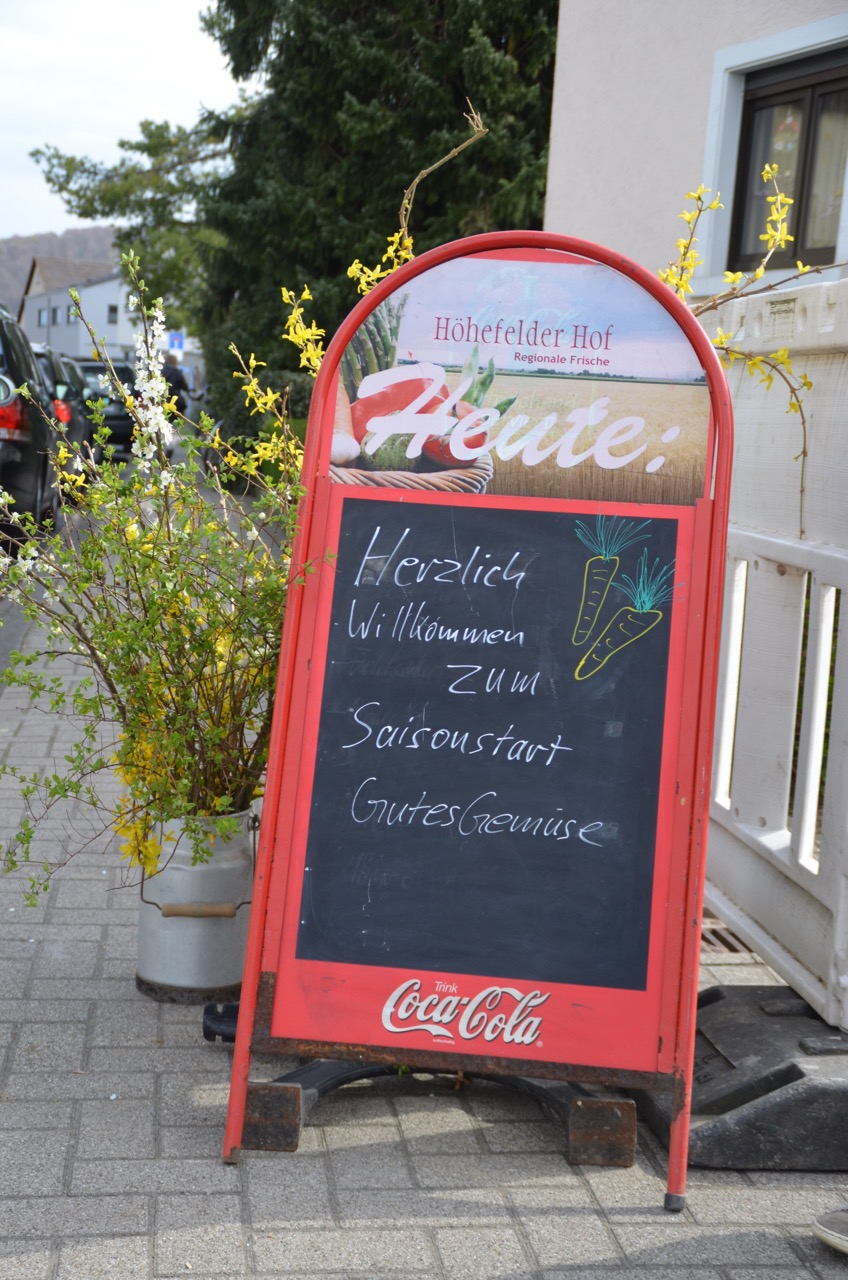 Höhefelder Hof
Regionale Frische
Heute:
Herzlich
Willkommen
zum
Saisonstart
GutesGemüse
Trink
Coca-Cola